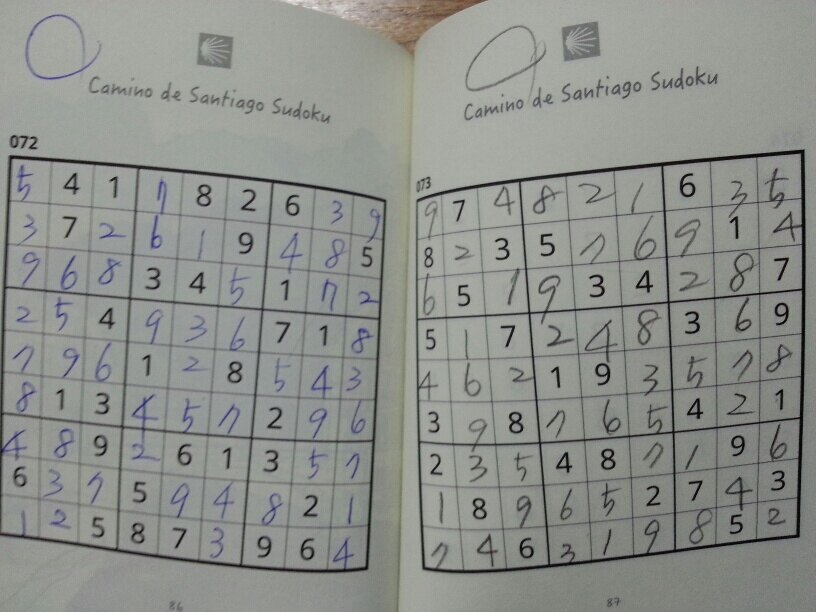 Camino de Santiago Sudoku
072
5 4 1 7 8 2 6 3 9
3 7 2 6 1 9 4 8 5
9 6 8 3 4 5 1 7 2
2 5 4 9 3 6 7 1 8
7 9 6 1 2 8 5 4 3
8 1 3 4 5 7 2 9 6
4 8 9 2 6 1 3 5 7
6 3 7 5 9 4 8 2 1
1 2 5 8 7 3 9 6 4
86
Camino de Santiago Sudoku
073
9 7 4 8 2 1 6 3 5
8 2 3 5 7 6 9 1 4
6 5 1 9 3 4 2 8 7
5 1 7 2 4 8 3 6 9
4 6 2 1 9 3 5 7 8
3 9 8 7 6 5 4 2 1
2 3 5 4 8 7 1 9 6
1 8 9 6 5 2 7 4 3
7 4 6 3 1 9 8 5 2
87